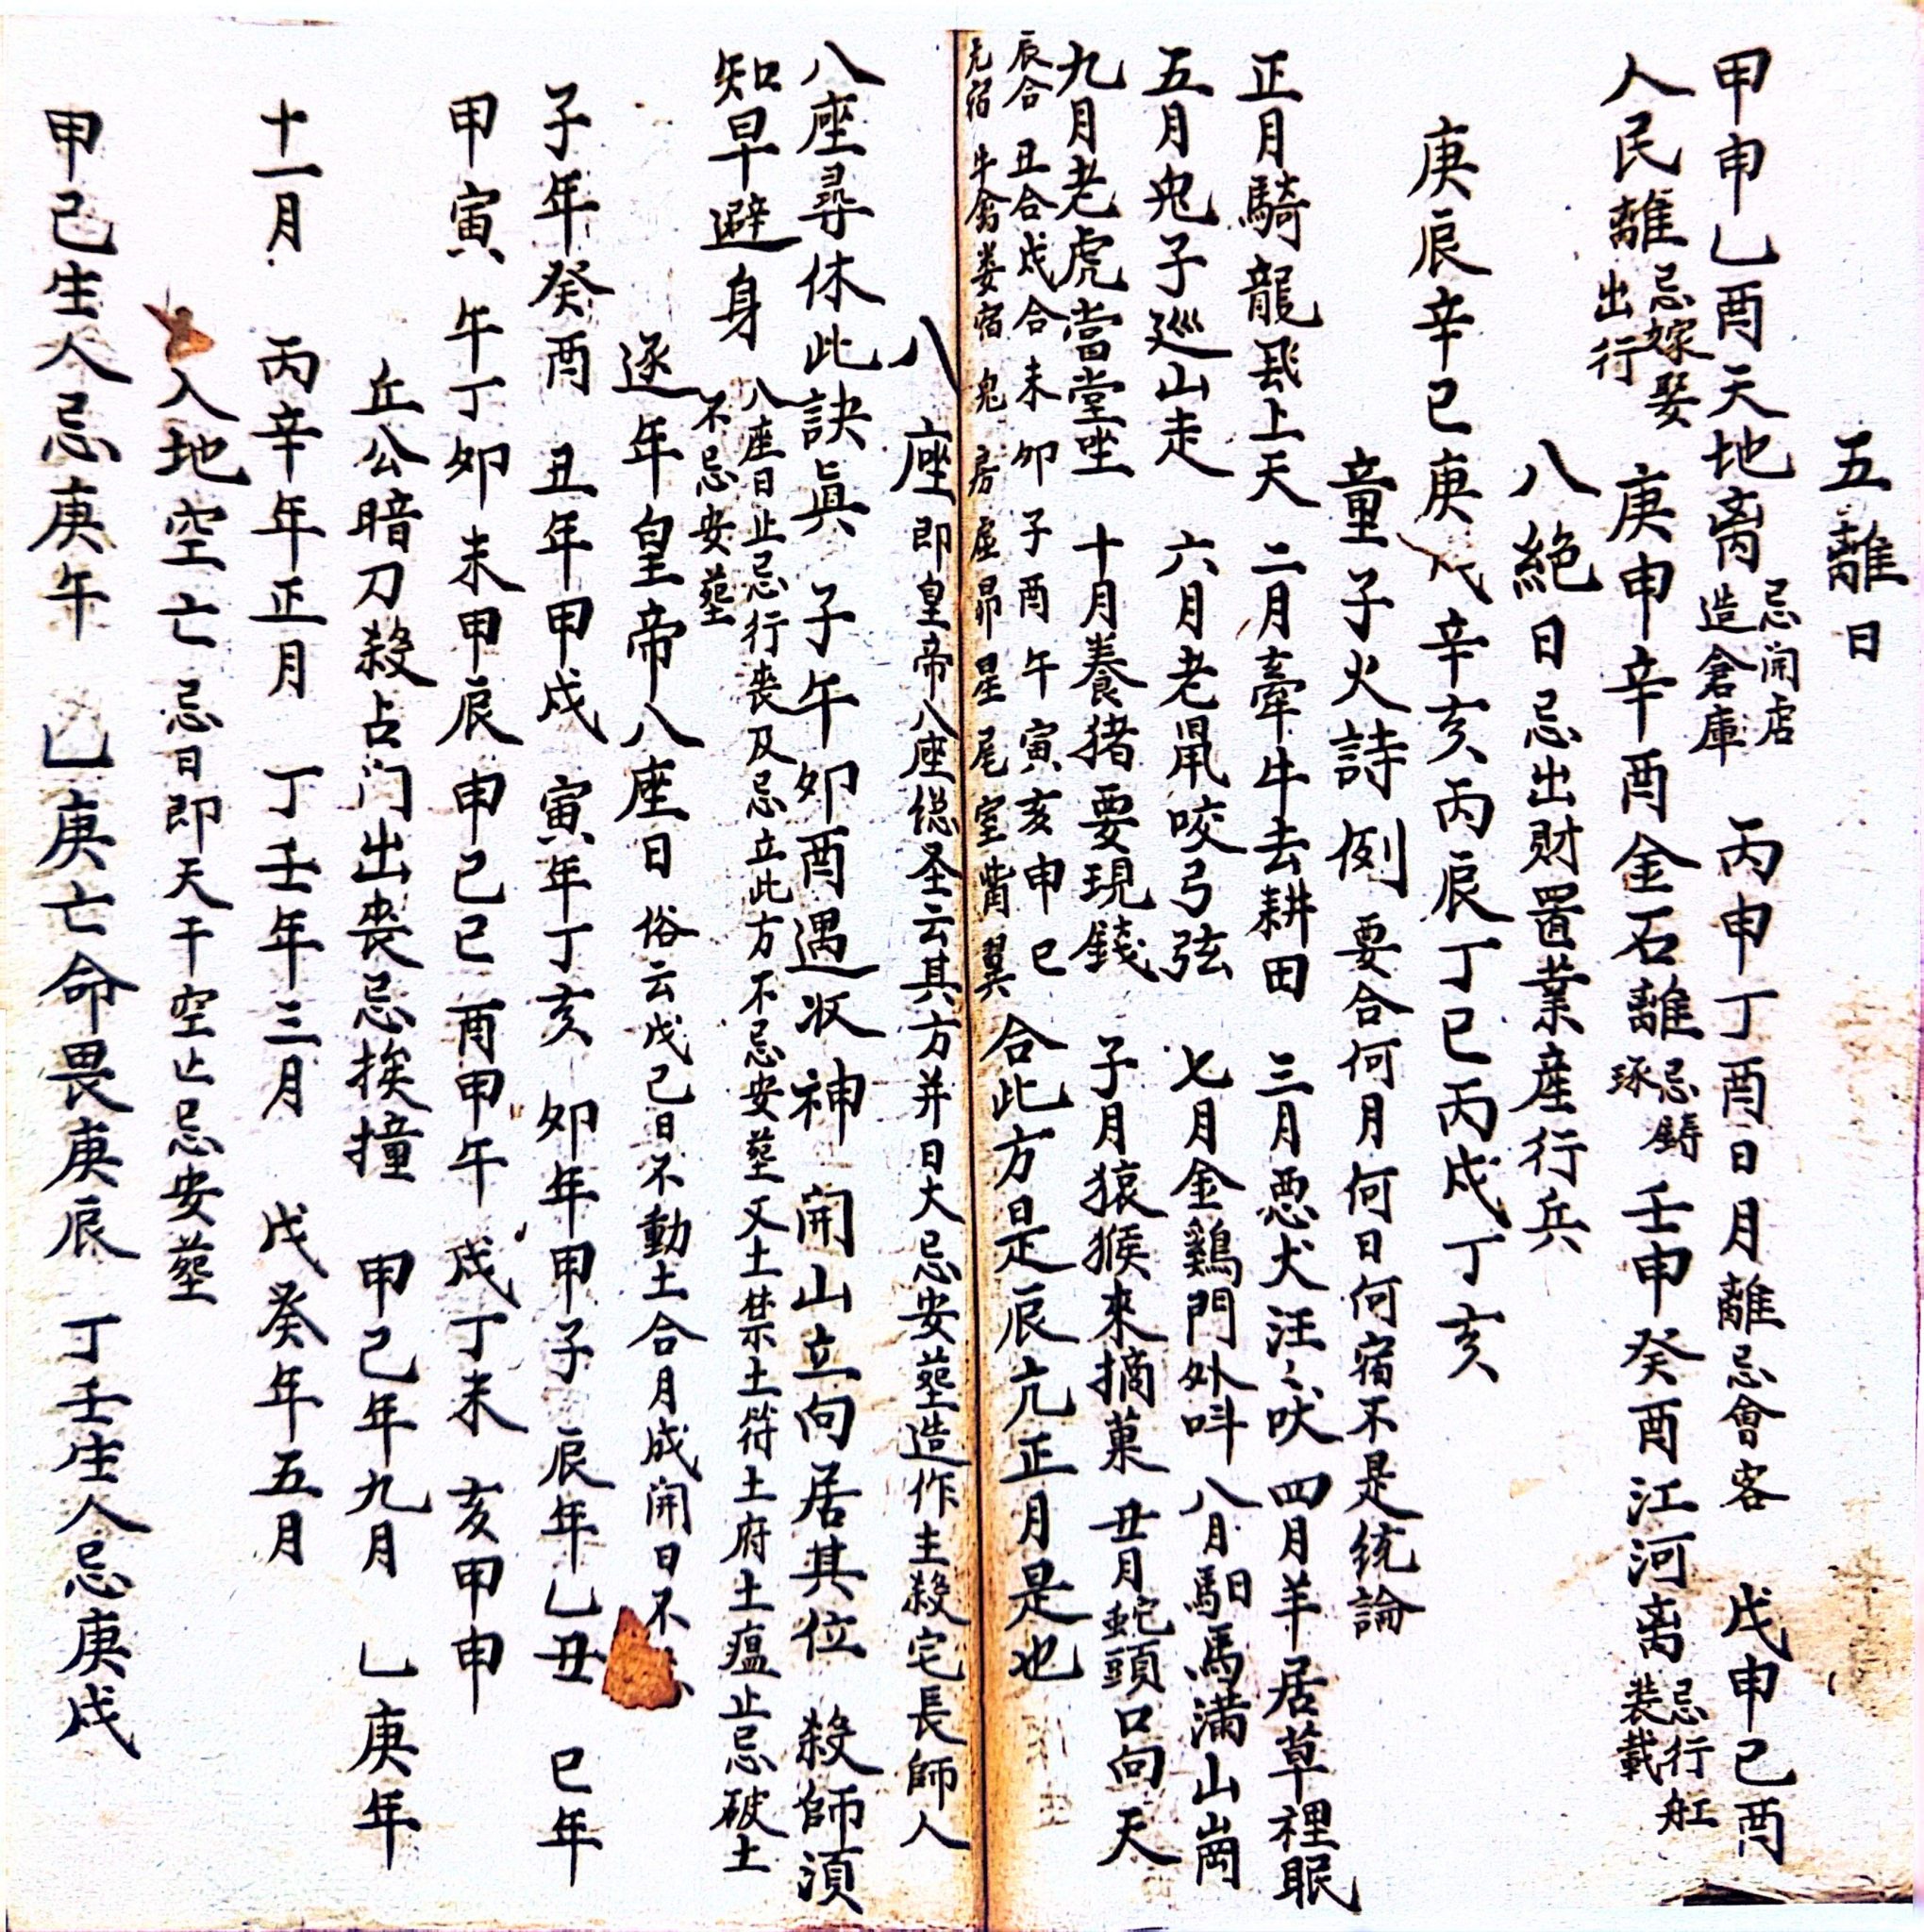 五離日
甲申乙酉天地离 忌開店造倉庫 丙申丁酉日月離 忌會客 戊申己酉
人民離 忌嫁娶出行 庚申辛酉金石離 忌鑄琢 壬申癸酉江河离 忌行舡裝載
八絕日忌出財置業産行兵
庚辰辛巳庚戌辛亥丙辰丁巳丙戌丁亥
童子火詩例 要合何月何日何宿不是统論
正月騎龍飛上天 二月牽牛去耕田 三月恶犬汪〻吠 四月羊居草裡眠
五月兔子巡山走 六月老鼠咬弓弦 七月金鷄門外呌 八月馹馬满山崗
九月老虎當堂坐 十月養猪要現錢 子月猿猴來摘菓 丑月蛇頭口向天
辰合 丑合戌合未 卯 子酉午寅亥申巳
亢宿 牛禽婁宿鬼 房 虚昴星尾室觜翼 合此方是辰亢正月是也
八座 即皇帝八座総圣云其方并日大忌安塟造作主殺宅長師人
八座尋休此訣眞 子午卯酉遇收神 開山立向居其位 殺師湏
知早避身 八座日止忌行丧及忌立此方不忌安塟又土禁土符土府土瘟止忌破土不忌安塟
逐年皇帝八座日 俗云戊己日不動土合月成開日不
子年癸酉 丑年甲戌 寅年丁亥 卯年甲子 辰年乙丑 巳年
甲寅 午丁卯 未甲辰 申己巳 酉甲午 戌丁未 亥甲申
丘公暗刀殺占门出丧忌挨撞 甲己年九月 乙庚年
十一月 丙辛年正月 丁壬年三月 戊癸年五月
入地空亡 忌日即天干空止忌安塟
甲己生人忌庚午 乙庚亡命畏庚辰 丁壬生人忌庚戌